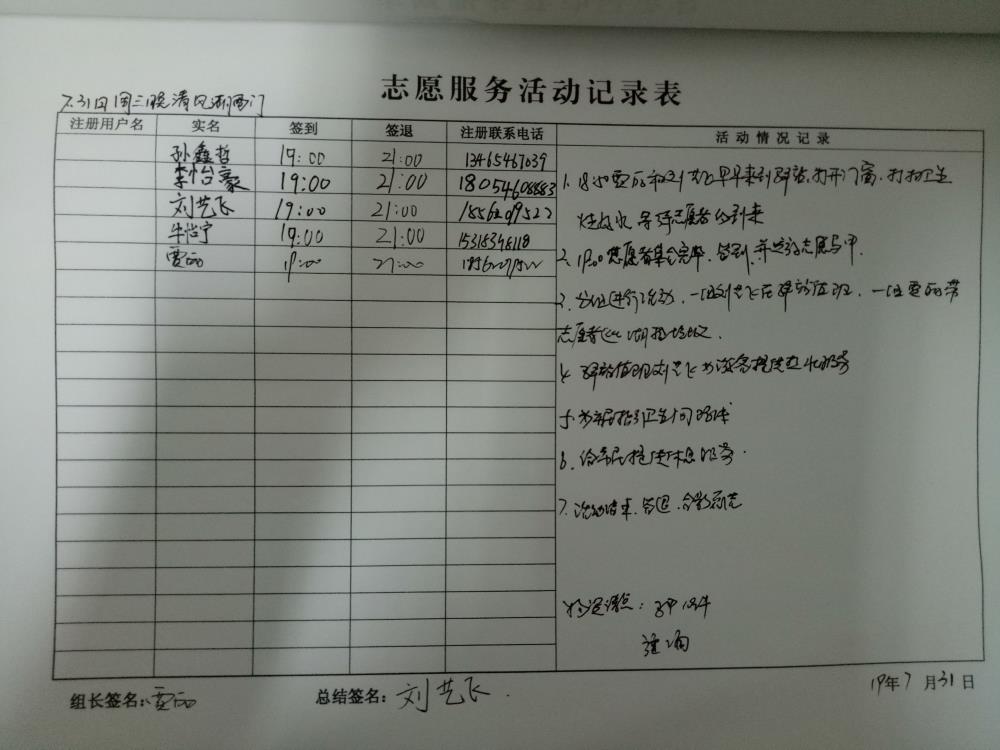 志愿服务活动记录表
7.31日周三晚清风湖西门
注册用户名 实名 签到 签退 注册联系电话 活动情况记录
孙鑫哲 19:00 21:00 13465467039
李怡豪 19:00 21:00 18054608883
刘艺飞 19:00 21:00
牛怡宁 19:00 21:00 15318348118
贾丽 19:00 21:00
1. 18:50贾丽和刘艺飞早早来到驿站,打开门窗,打扫卫生
志愿者的到来
2. 19:00志愿者集合完毕,签到,并 志愿马甲.
3. 分组进行活动,一组刘艺飞在驿站值班,一组贾丽带
志愿者 湖捡垃圾.
4. 驿站值班刘艺飞为 提供 服务
5. 为市民指引卫生间路线
6. 给市民提供休息服务.
7. 活动结束,签退,合影留念
组长签名:贾丽 总结签名:刘艺飞. 19年7月31日